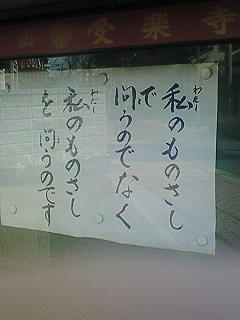 山 受楽寺
私のものさし
で
問うのでなく
私のものさし
を問うのです